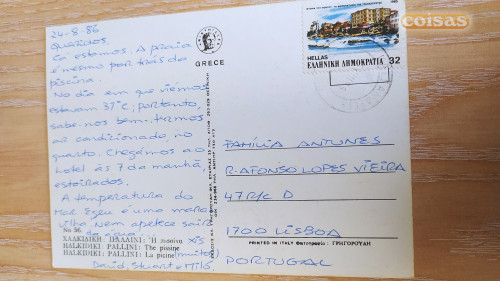 coisas
24-8-86
Queridos,
Cá estamos. A praia
é mesmo por trás da
piscina.
No dia em que viemos
estavam 37°C; portanto,
sabe-nos bem termos
ar condicionado, no
quarto. Chegámos ao
hotel às 7 da manhã,
estoirados.
A temperatura do
Mar Egeu é uma mara-
vilha. Nem apetece sair
da água.
No 56.
ΧΑΛΚΙΔΙΚΗ: ΠΑΛΛΗΝΙ: Ἡ πισσίνα
HALKIDIKI: PALLINI: The piscine
HALKIDIKI: PALLINI: La picine
(muitos)
David, Stuart e Miló,
GRECE
HELLAS
ΕΛΛΗΝΙΚΗ ΔΗΜΟΚΡΑΤΙΑ 32
FAMÍLIA ANTUNES
R. AFONSO LOPES VIEIRA
47 R/C D
1700 LISBOA
PRINTED IN ITALY Φωτογραφία: ΓΡΗΓΟΡΟΥΛΗ
PORTUGAL